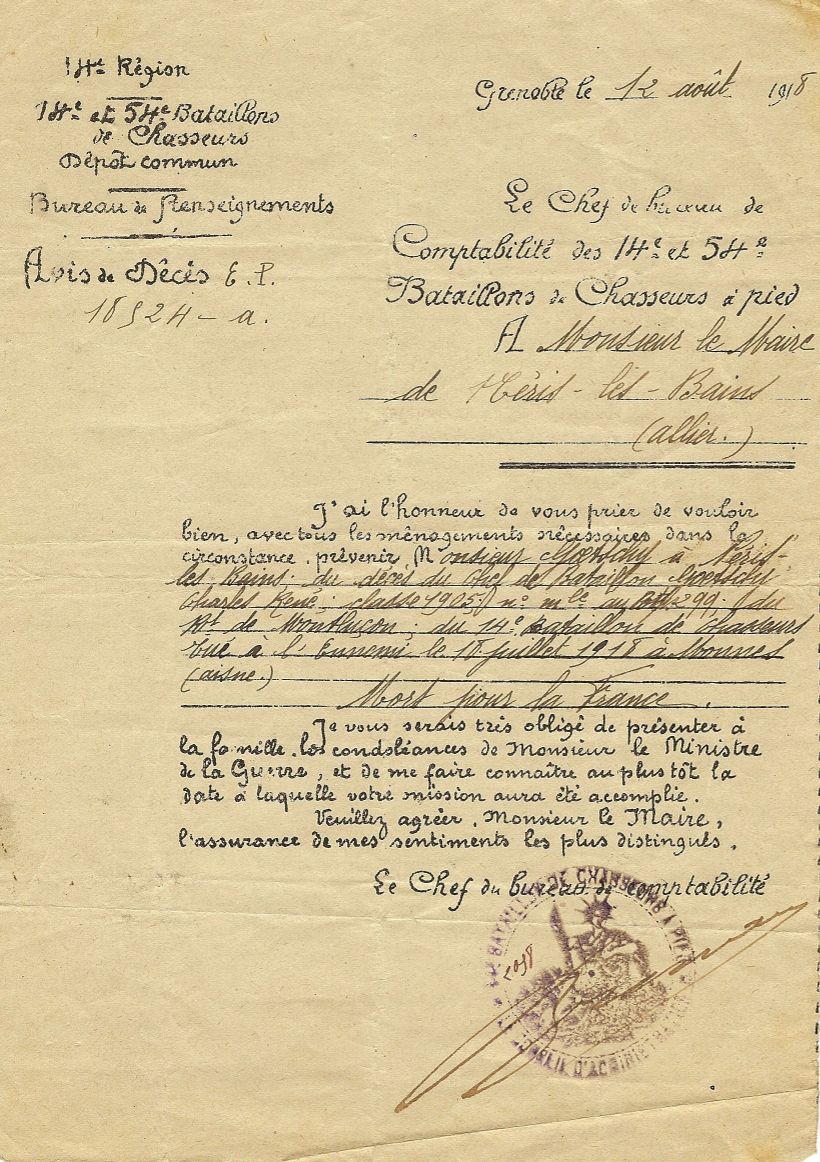 14e Région
14e et 54e Bataillons
de Chasseurs
Dépôt commun
Bureau de Renseignements
Avis de Décès E. P.
18524 - a.
Grenoble le 12 août 1918
Le Chef de bureau de
Comptabilité des 14e et 54e
Bataillons de Chasseurs à pied
A Monsieur le Maire
de Néris-les-Bains
(allier.)
J'ai l'honneur de vous prier de vouloir
bien, avec tous les ménagements nécessaires dans la
circonstance, prévenir, Monsieur à Néris-
les-Bains; du décès du Chef de Bataillon
Charles René; classe 1905; n° mle au 99; du
Rt de Montluçon; du 14e Bataillon de chasseurs
tué à l'Ennemi le 18 juillet 1918 à Monnes
(aisne.)
Mort pour la France.
Je vous serais très obligé de présenter à
la famille, les condoléances de Monsieur le Ministre
de la Guerre, et de me faire connaître au plus tôt la
date à laquelle votre mission aura été accomplie.
Veuillez agréer, Monsieur le Maire,
l'assurance de mes sentiments les plus distingués.
Le Chef du bureau de comptabilité
BATAILLON DE CHASSEURS A PIED
CONSEIL D'ADMINISTRATION